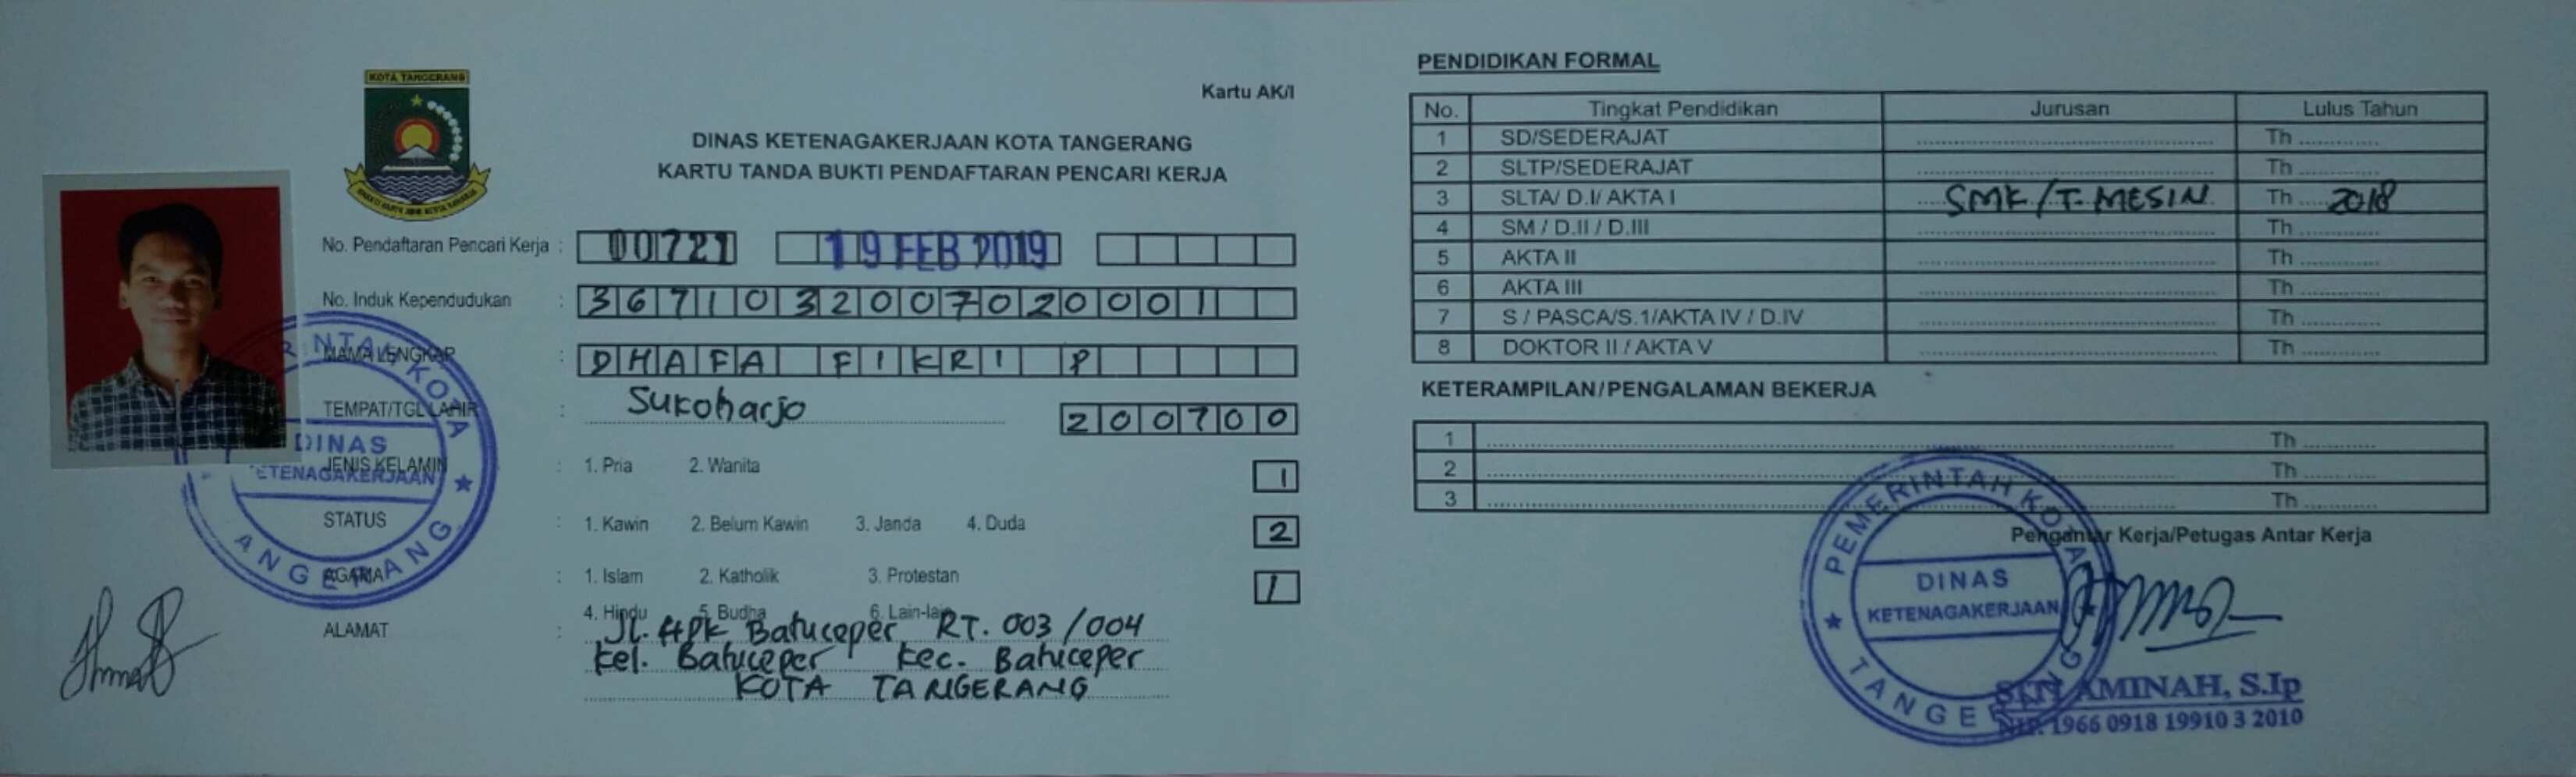 KOTA TANGERANG
Kartu AK/I
DINAS KETENAGAKERJAAN KOTA TANGERANG
KARTU TANDA BUKTI PENDAFTARAN PENCARI KERJA
No. Pendaftaran Pencari Kerja : 00721 19 FEB 2019
No. Induk Kependudukan : 3671032007020001
NAMA LENGKAP : DHAFA FIKRI P
TEMPAT/TGL LAHIR : Sukoharjo 200700
JENIS KELAMIN : 1. Pria 2. Wanita 1
STATUS : 1. Kawin 2. Belum Kawin 3. Janda 4. Duda 2
AGAMA : 1. Islam 2. Katholik 3. Protestan 1
4. Hindu 5. Budha 6. Lain-lain
ALAMAT : Jl. Batuceper RT. 003/004
Kel. Batuceper Kec. Batuceper
KOTA TANGERANG
DINAS
KETENAGAKERJAAN
TANGERANG
PENDIDIKAN FORMAL
No. Tingkat Pendidikan Jurusan Lulus Tahun
1 SD/SEDERAJAT Th
2 SLTP/SEDERAJAT Th
3 SLTA/ D.I/ AKTA I SMK/T. MESIN Th 2018
4 SM / D.II / D.III Th
5 AKTA II Th
6 AKTA III Th
7 S / PASCA/S.1/AKTA IV / D.IV Th
8 DOKTOR II / AKTA V Th
KETERAMPILAN/PENGALAMAN BEKERJA
1 Th
2 Th
3 Th
Pengantar Kerja/Petugas Antar Kerja
PEMERINTAH KOTA
DINAS
KETENAGAKERJAAN
TANGERANG
AMINAH, S.Ip
NIP. 1966 0918 19910 3 2010